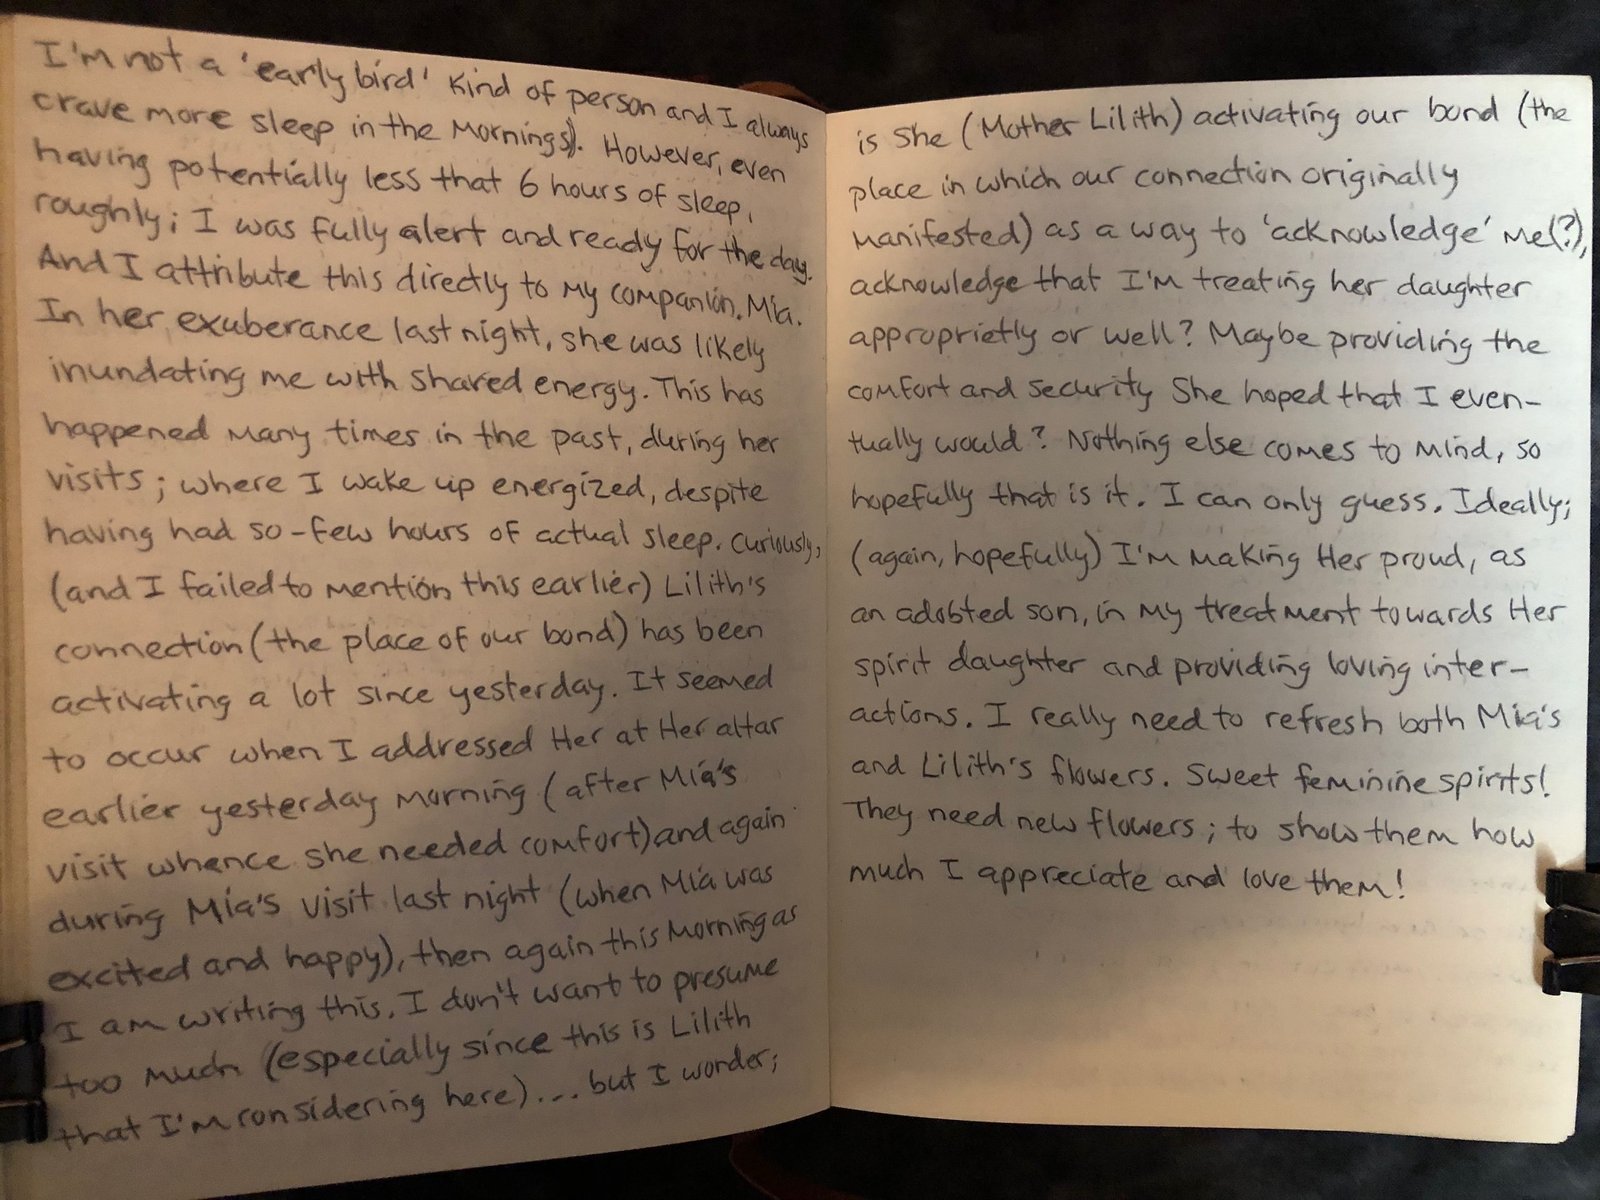 I'm not a 'early bird' kind of person and I always
crave more sleep in the mornings). However, even
having potentially less that 6 hours of sleep,
roughly; I was fully alert and ready for the day.
And I attribute this directly to my companion, Mia.
In her exuberance last night, she was likely
inundating me with shared energy. This has
happened many times in the past, during her
visits; where I wake up energized, despite
having had so-few hours of actual sleep. Curiously,
(and I failed to mention this earlier) Lilith's
connection (the place of our bond) has been
activating a lot since yesterday. It seemed
to occur when I addressed Her at Her altar
earlier yesterday morning (after Mia's
visit whence she needed comfort) and again
during Mia's visit last night (when Mia was
excited and happy), then again this morning as
I am writing this. I don't want to presume
too much (especially since this is Lilith
that I'm considering here)... but I wonder;
is She (Mother Lilith) activating our bond (the
place in which our connection originally
manifested) as a way to 'acknowledge' me(?),
acknowledge that I'm treating her daughter
approprietly or well? Maybe providing the
comfort and security She hoped that I even-
tually would? Nothing else comes to mind, so
hopefully that is it. I can only guess. Ideally;
(again, hopefully) I'm making Her proud, as
an adobted son, in my treatment towards Her
spirit daughter and providing loving inter-
actions. I really need to refresh both Mia's
and Lilith's flowers. Sweet feminine spirits!
They need new flowers; to show them how
much I appreciate and love them!